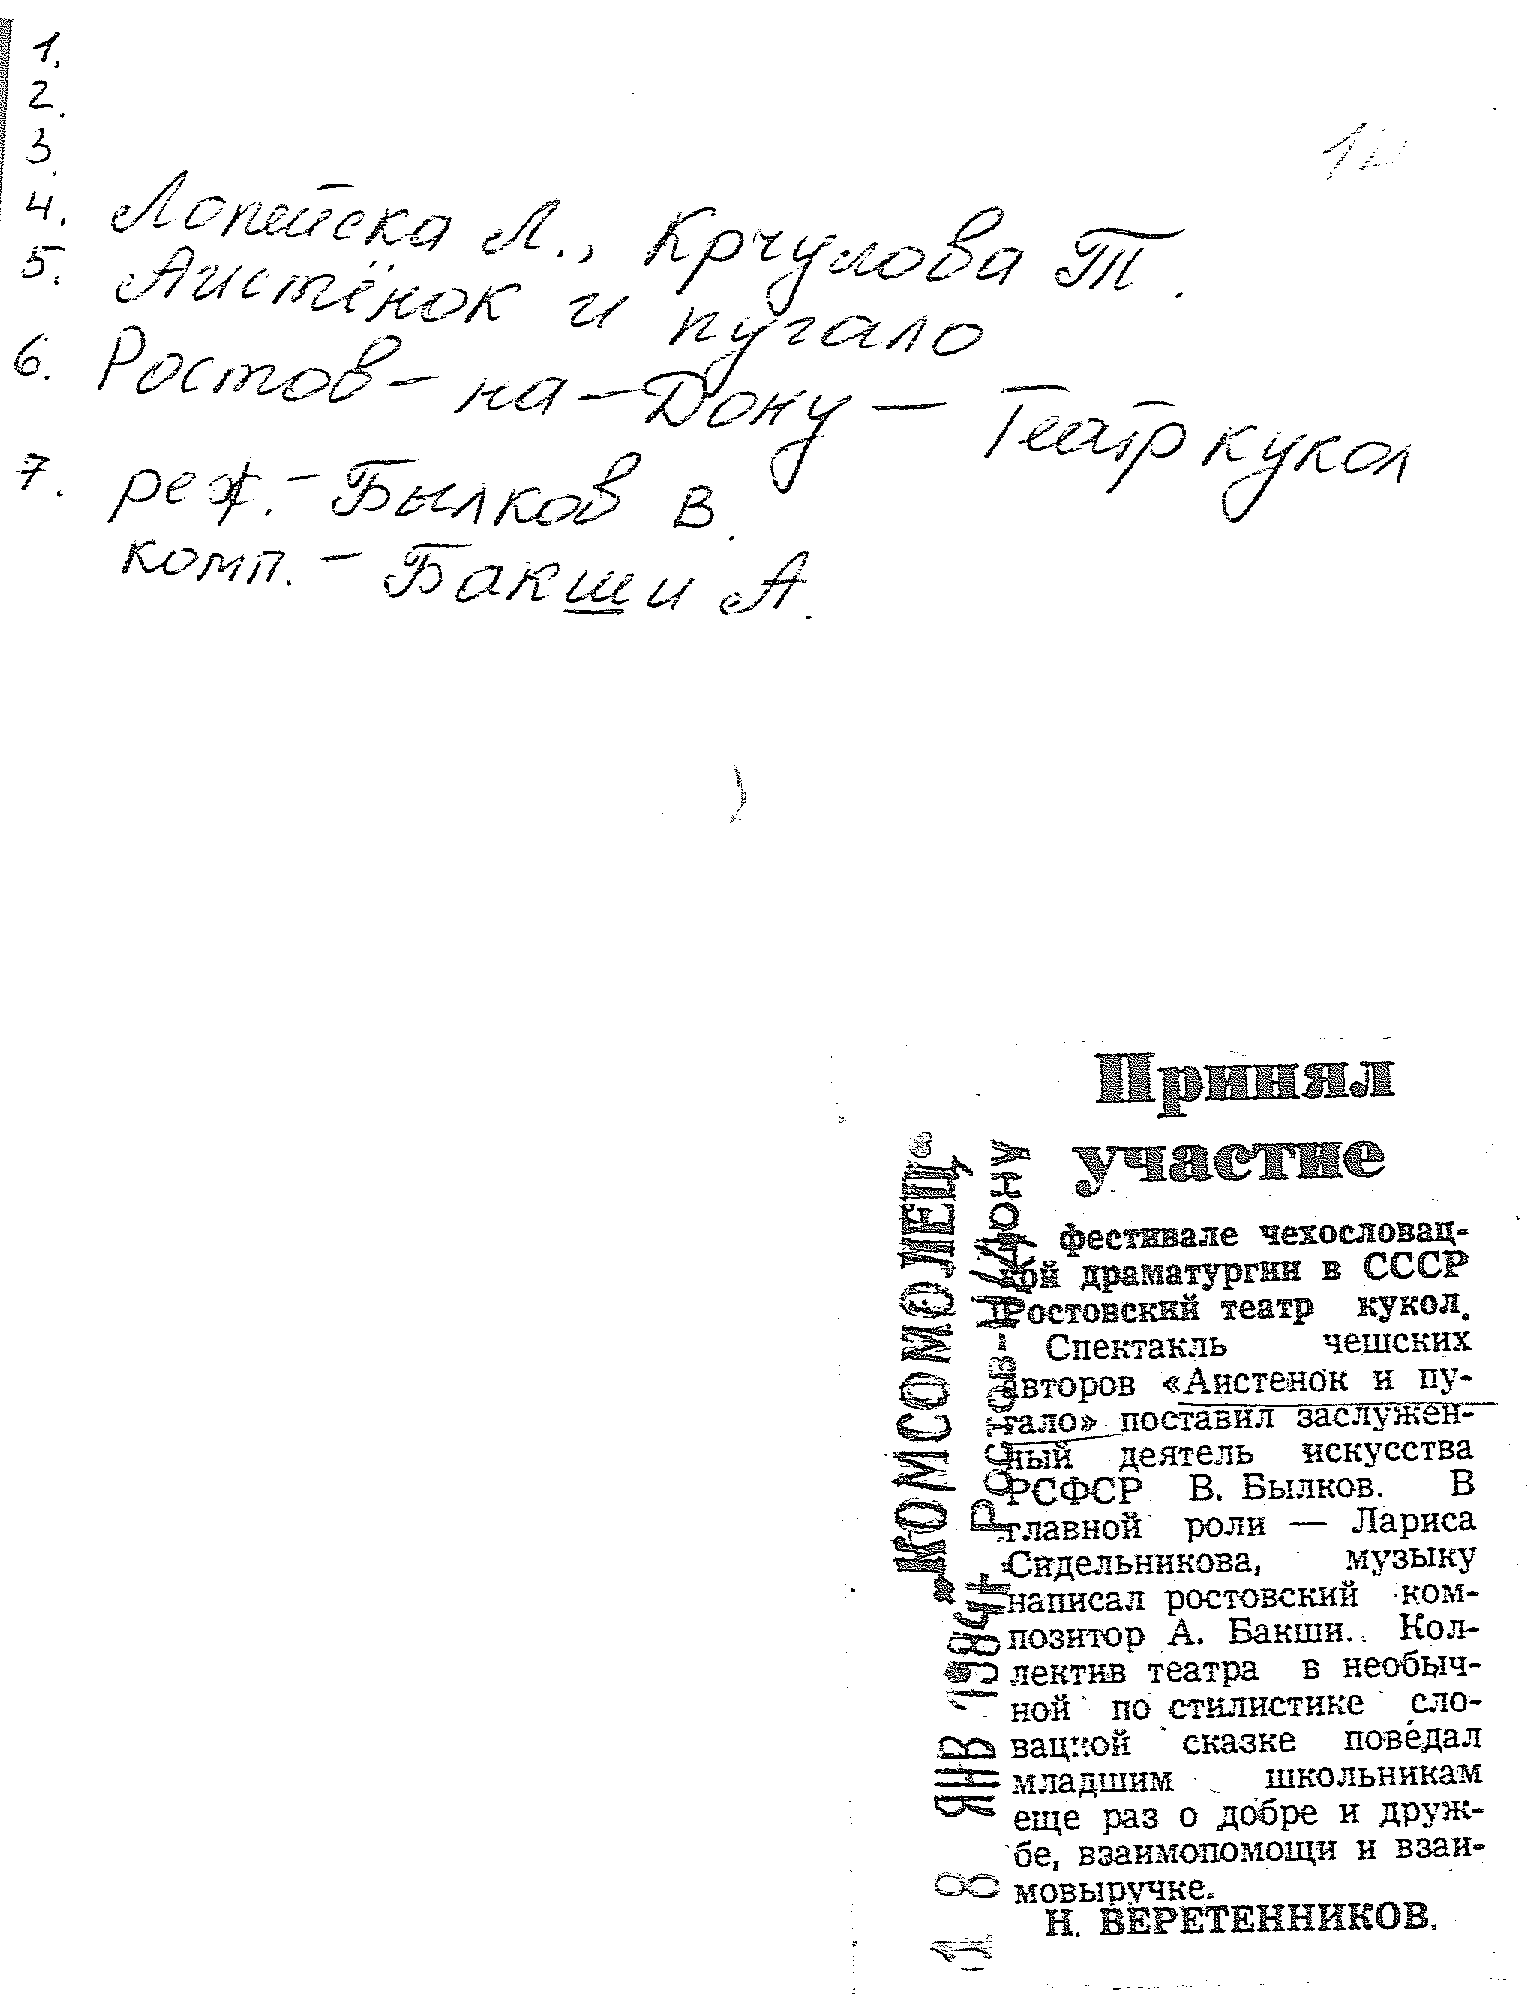 1.
2.
3.
4. Лопейска Л., Крчулова Т.
5. Аистёнок и пугало
6. Ростов-на-Дону — Театр кукол
7. реж. - Былков В.
комп. - Бакши А.
Принял
участие
фестивале чехословац-
кой драматургии в СССР
Ростовский театр кукол.
Спектакль чешских
авторов «Аистенок и пу-
гало» поставил заслужен-
ный деятель искусства
РСФСР В. Былков. В
главной роли — Лариса
Сидельникова, музыку
написал ростовский ком-
позитор А. Бакши. Кол-
лектив театра в необыч-
ной по стилистике сло-
вацкой сказке поведал
младшим школьникам
еще раз о добре и друж-
бе, взаимопомощи и взаи-
мовыручке.
Н. ВЕРЕТЕННИКОВ.
„КОМСОМОЛЕЦ"
г. Ростов-Н/Дону
18 ЯНВ 1984